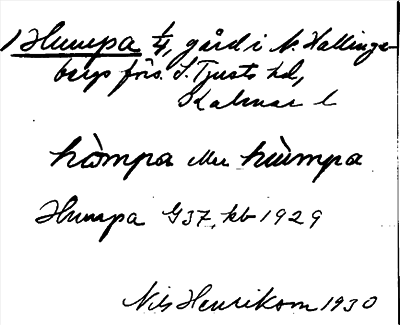 1) Humpa 1/4, gård i N. Hallinge-
bergs förs. S. Tjusts hd,
Kalmar l
hòmpa eller hùmpa
Humpa G37, kb 1929
Nils Henrikson 1930